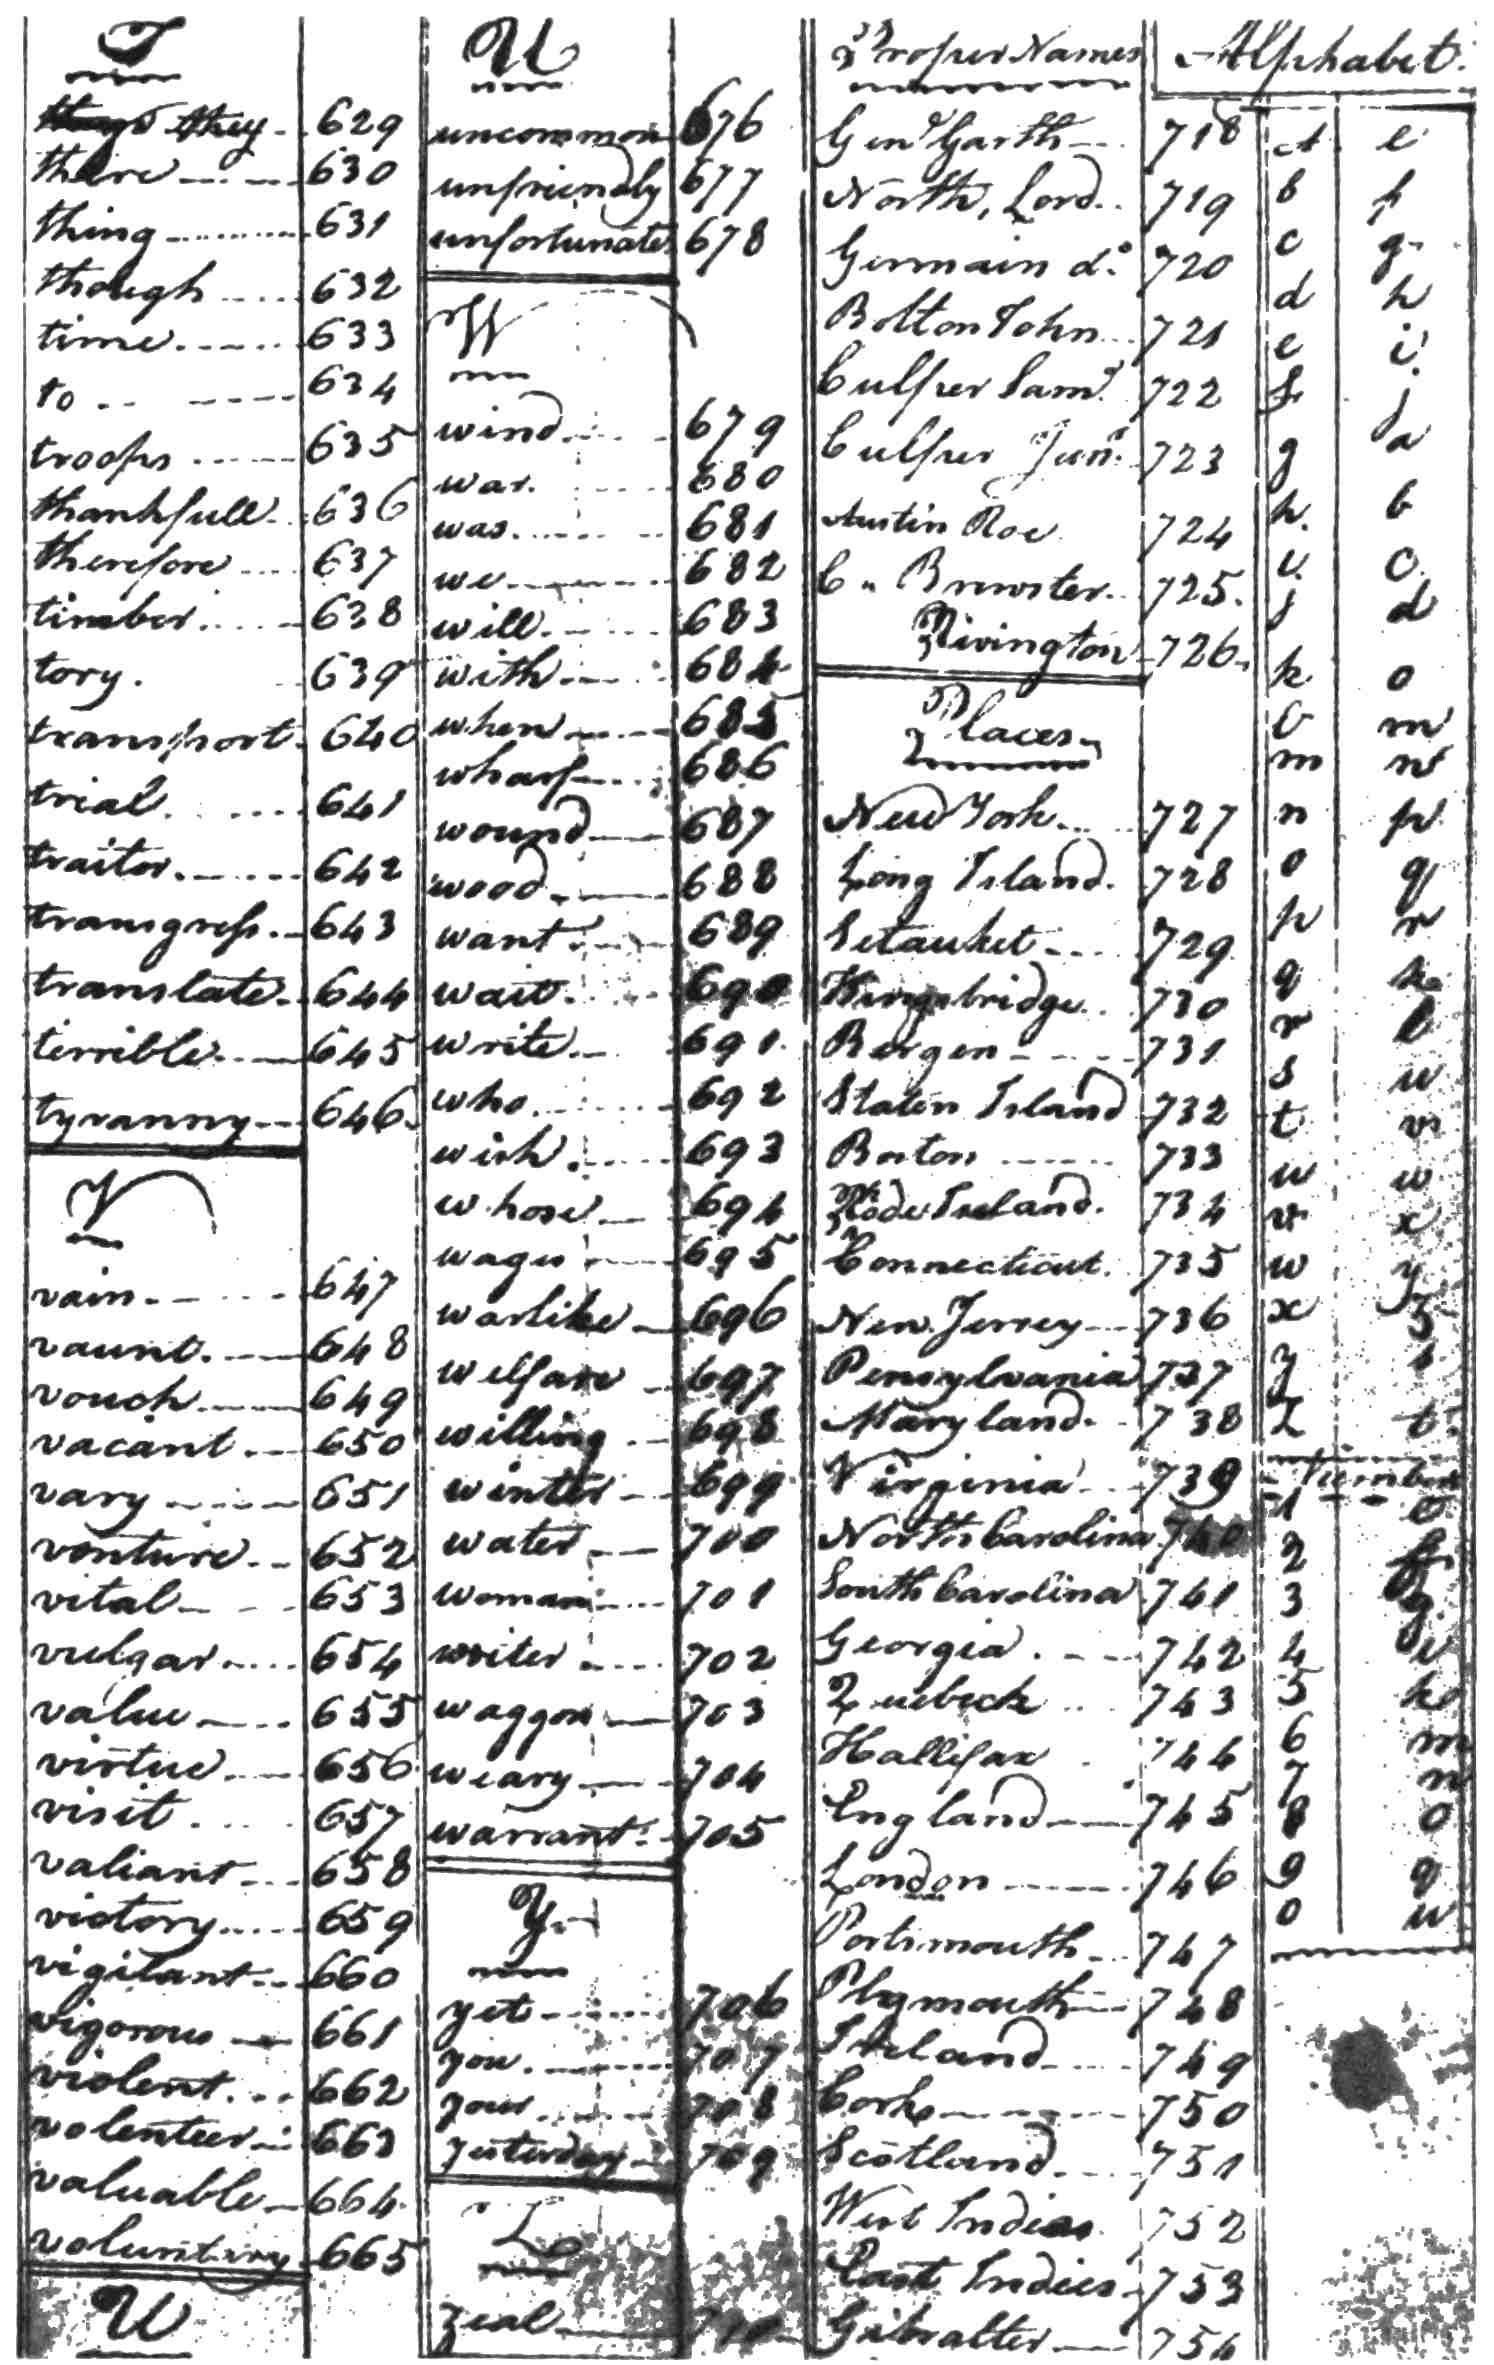 T
they 629
there 630
thing 631
though 632
time 633
to 634
troops 635
thankfull 636
therefore 637
timber 638
tory. 639
transport 640
trial 641
traitor 642
transgress 643
translate 644
terrible 645
tyranny 646
V
vain 647
vaunt 648
vouch 649
vacant 650
vary 651
venture 652
vital 653
vulgar 654
value 655
virtue 656
visit 657
valiant 658
victory 659
vigilant 660
vigorous 661
violent 662
volenteer 663
valuable 664
voluntary 665
U
U
uncommon 676
unfriendly 677
unfortunate 678
W
wind 679
war 680
was 681
we 682
will 683
with 684
when 685
wharf 686
wound 687
wood 688
want 689
wait 690
write 691
who 692
wish 693
whose 694
wages 695
warlike 696
welfare 697
willing 698
winter 699
water 700
woman 701
writer 702
waggon 703
weary 704
warrant 705
Y
yet 706
you 707
your 708
yesterday 709
Z
zeal 710
Proper Names
Genl Garth 718
North, Lord 719
Germain do 720
Bolton John 721
Culper Saml 722
Culper Junr 723
Austin Roe 724
C. Brewster 725.
Rivington 726.
Places
New York 727
Long Island 728
Setauket 729
Kingsbridge 730
Bergen 731
Staten Island 732
Boston 733
Rode Island 734
Connecticut 735
New Jersey 736
Pensylvania 737
Maryland 738
Virginia 739
North Carolina 740
South Carolina 741
Georgia 742
Quebeck 743
Hallifax 744
England 745
London 746
Portsmouth 747
Plymouth 748
Ireland 749
Cork 750
Scotland 751
West Indies 752
East Indies 753
Gibralter 754
Alphabet
a e
b f
c g
d h
e i
f j
g a
h b
i c
j d
k o
l m
m n
n p
o q
p r
q k
r l
s u
t v
u w
v x
w y
x z
y s
z t
Numbers
1 e
2 f
3 g
4 i
5 k
6 m
7 n
8 o
9 q
0 u